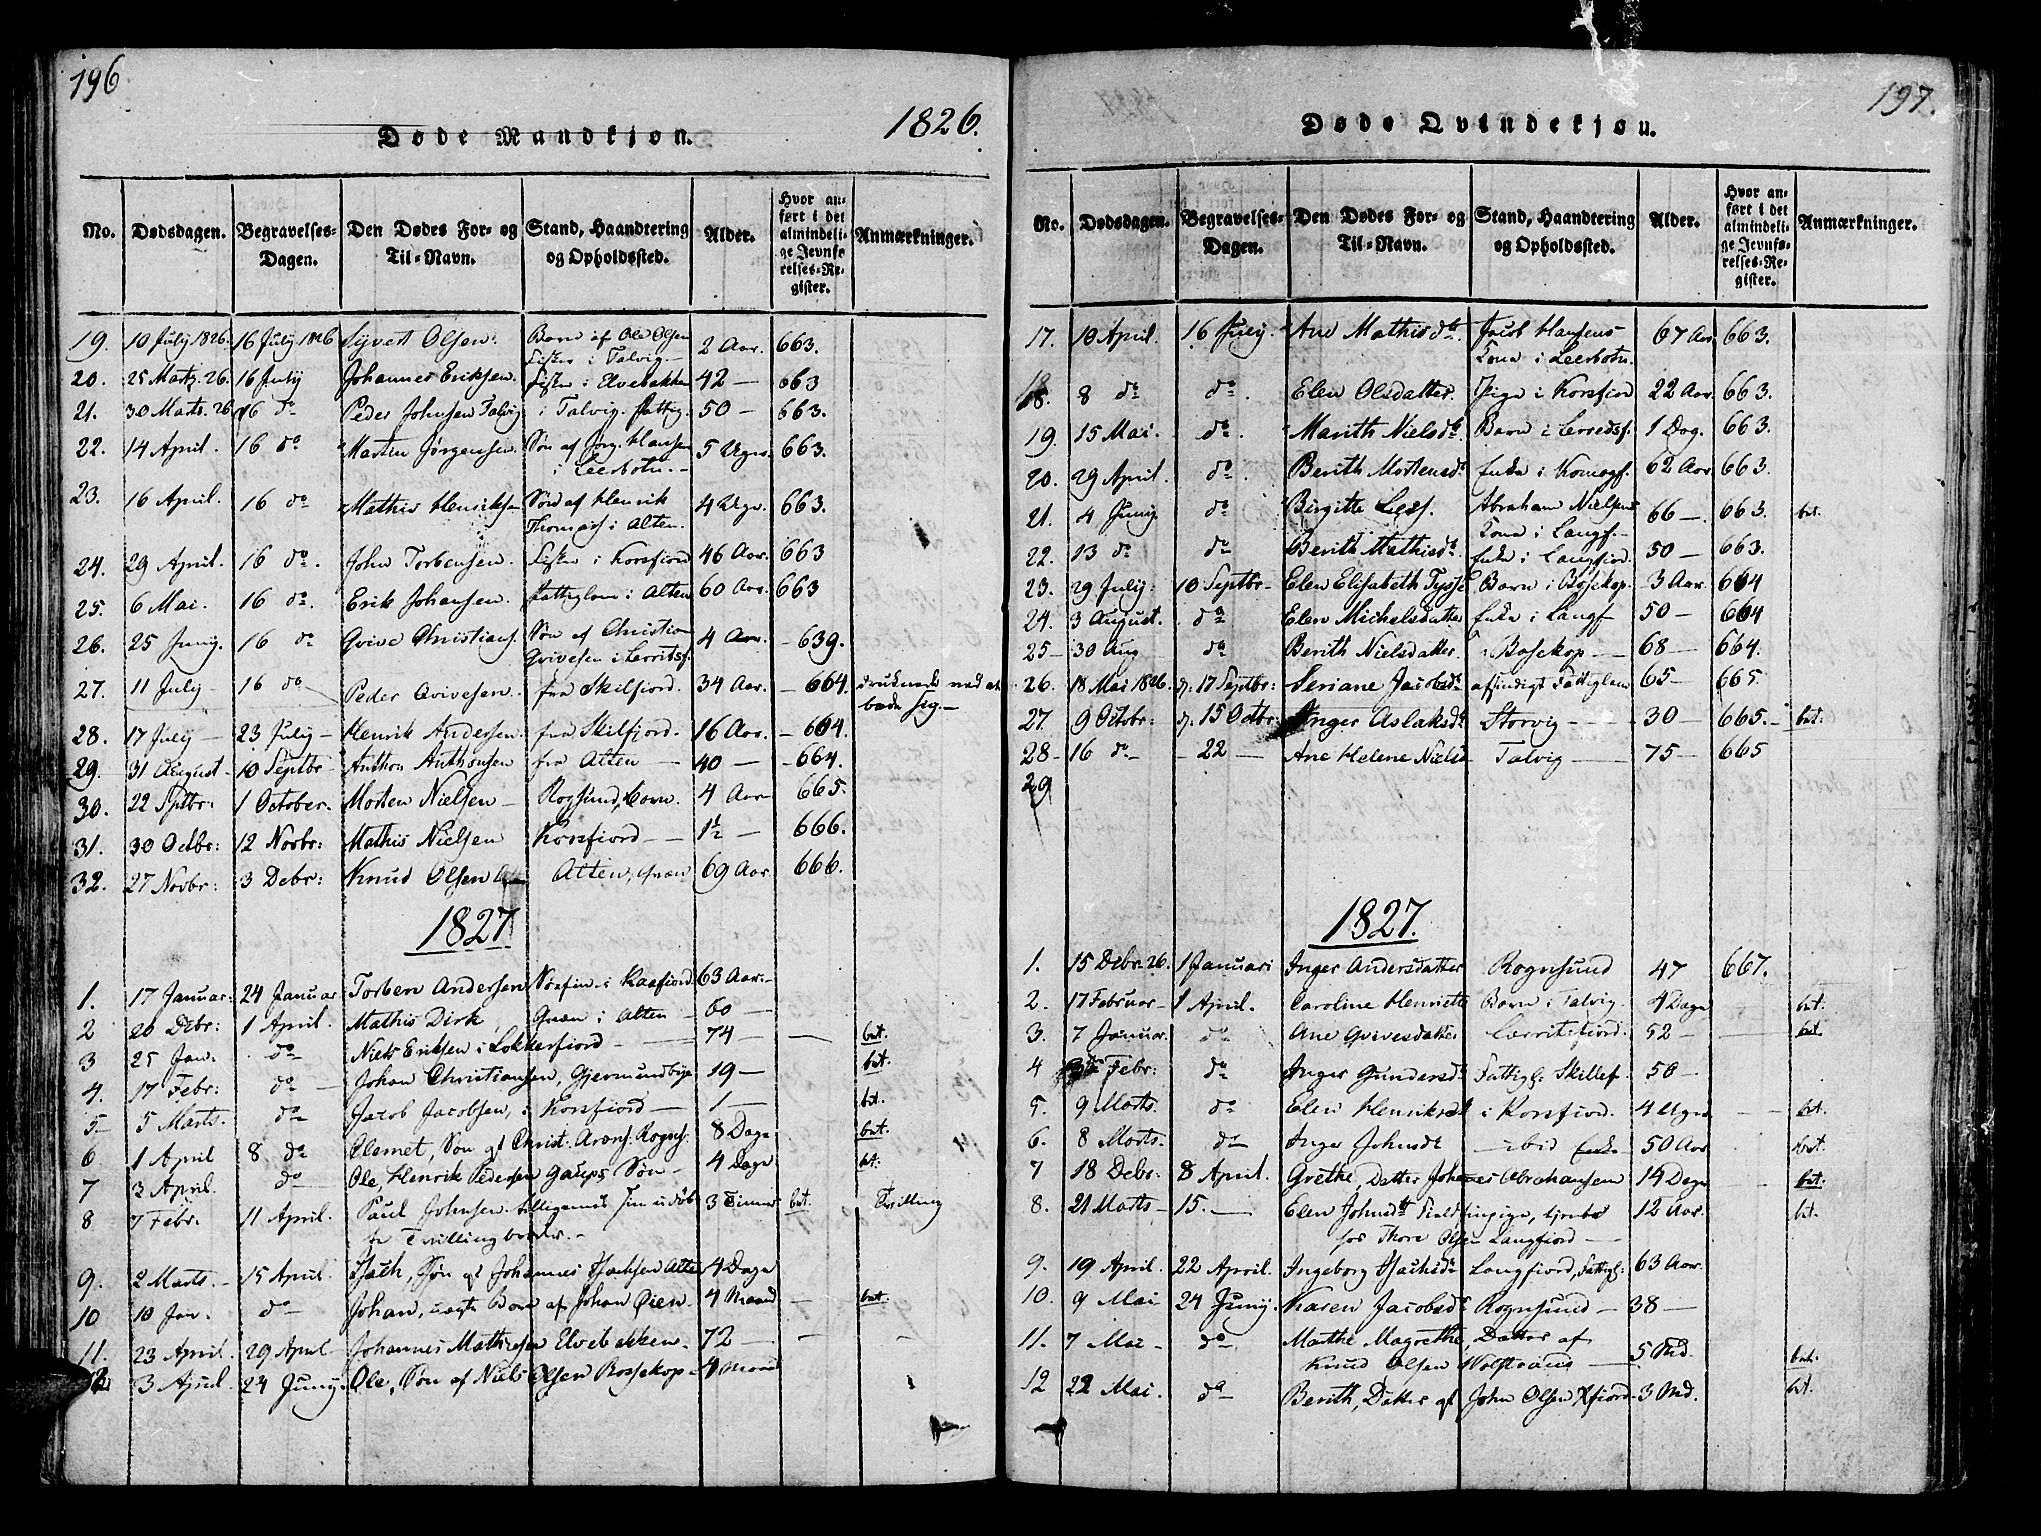 196
1826.
Døde Mandkjøn.
No. Dødsdagen. Begravelses-Dagen. Den Dødes For- og Til-Navn. Stand, Haandtering og Opholdssted. Alder. Hvor anført i det almindelige Jevnførelses-Register. Anmærkninger.
19. 10 July 1826. 16 July 1826 Sivert Olsen. Barn af Ole Olsen
i Talvig 2 Aar. 663.
20. 25 Marts. 26. 16 July Johannes Eriksen. i Elvebakken 42 — 663
21. 30 Marts. 26 16 do Peder Johnsen Talvig i Talvig. fattig. 50 — 663.
22. 14 April. 16 do Morten Jørgensen. Søn af Jørg. Hansen
i Leerbotn. 5 Ugr. 663.
23. 16 April. 16 do Mathis Henriksen Søn af Henrik
Thomas i Alten. 4 Ugr. 663.
24. 29 April. 16 do. John Torbensen. i Korsfiord 46 Aar. 663
25. 6 Mai. 16 do. Erik Johansen. fattiglem i Alten 60 Aar. 663
26. 25 Juny. 16 do Qvive Christians. Søn af Christian
Qvivesen i Lerritsf. 4 Aar. — 639.
27. 11 July — 16 do Peder Qvivesen. fra Skilfiord. 34 Aar. — 664. druknede ved at
bade sig. —
28. 17 July — 23 July — Henrik Andersen. fra Skilfjord. 16 Aar. — 664.
29. 31 August — 10 Septbr — Anthon Anthonsen fra Alten — 40 — — 664.
30. 22 Sptbr: 1 October. Morten Nielsen — Rogsund, barn. 4 Aar 665.
31. 30 Octbr: 12 Novbr: Mathis Nielsen Korsfiord — 1½ — 666.
32. 27 Novbr: 3 Debr: Knud Olsen Alten, Qvæn 69 Aar 666.
1827
1. 17 Januar: 24 Januar Torben Andersen i Kaafiord 63 Aar.
2 20 Debr: 1 April. Mathis Dirk, Qvæn i Alten — 60 —
3 25 Jan. do Niels Eriksen i Lokkerfiord — 74 — bat.
4. 17 Febr: do — Johan Christiansen, Gjermundbye 19 — bat.
5. 5 Marts. do Jacob Jacobsen, i Korsfiord — 1 — bat.
6 1 April 8 do Clemet, Søn af Christ. Arons. Rognsf. 8 Dage bat.
7 3 April. do — Ole Henrik Pedersen Gaups Søn — 4 Dage bt.
8 7 Febr. 11 April. Paul Johnsen 3 Timer bat. Tvilling
Tvillingbroder. —
9. 2 Marts. — 15 April. Isach, Søn af Johannes Isachsen Alten 4 Dage
10 10 Jan. do — Johan, uægte Barn af Johan Øien — 4 Maaned — bat.
11. 23 April. 29 April Johannes Mathiesen Elvebakken — 72 —
12. 3 April. 24 Juny. Ole, Søn af Niels Olsen Bossekop — 4 Maaned
197.
Døde Qvindekjøn.
No. Dødsdagen. Begravelses-Dagen. Den Dødes For- og Til-Navn. Stand, Haandtering og Opholdssted. Alder. Hvor anført i det almindelige Jevnførelses-Register. Anmærkninger.
17. 10 April. 16 July — Ane Mathisdtr. Jacob Hansens
Kona i Leerbotn. 67 Aar 663.
18. 8 do do. Elen Olsdatter. Pige i Korsfiord 22 Aar 663.
19. 15 Mai. do. Marith Nielsdtr Barn i Lerredsf. 1 Dag. 663.
20. 29 April. do. Berith Mortensdtr Enke i Komagf. 62 Aar 663.
21. 4 Juny. do Birgitte Abraham Nielsens
Kona i Langf. — 66 — 663. bat.
22. 13 do do Berith Mathisdtr Enke i Langfiord 50 — 663.
23. 29 July. 10 Septbr — Elen Elisabeth Barn i Bosekop. 3 Aar. 664
24. 3 August. do Elen Michelsdatter Enke i Langf 50 — 664
25 — 30 Aug do Berith Nielsdatter. i Bosekop — 68 — 664.
26. 18 Mai 1826. d. 17 Septbr: Seriane Jacobsdtr afsindigt Fattiglem 65 — 665.
27. 9 Octobr: d. 15 Octbr: Inger Aslaksdtr Storvig — 30 — 665. — bat:
28 — 16 do — 22 — Ane Helene Nielsd Talvig — 75 — 665
29
1827.
1. 15 Debr. 26. 1 Januari Inger Andersdatter Rognsund 47 667.
2. 17 Februar — 1 April. Caroline Henriette Barn i Talvig. 4 Dage bat.
3. 7 Januar. do Ane Qvivesdatter Lerritsfiord. 52 — bat.
4 Febr: do Inger Gundersdtr Fattigl: Skillef. 50 —
5. 9 Marts. do Elen Henriksdtr i Korsfiord. 4 Ugr bat.
6. 8 Marts — do Inger Johnsdtr — ibid Enke — 50 Aar bat.
7 18 Debr: 8 April. Grethe, Datter Johannes Abrahamsen 14 Dage bat.
8. 21 Marts — 15. — Elen Johnsdtr 12 Aar. bt.
hos Thore Olsen Langfiord —
9. 19 April. 22 April. Ingeborg Isachsdtr Langfiord, Fattigl: 63 Aar.
10. 9 Mai 24 Juny. Karen Jacobsdtr Rognsund — 38 —
11. 7 Mai — do Marthe Magrethe, Datter af
Knud Olsen — 5 Md. bat.
12 22 Mai. do Berith, Datter af John Olsen Kfiord — 3 Md. bt.